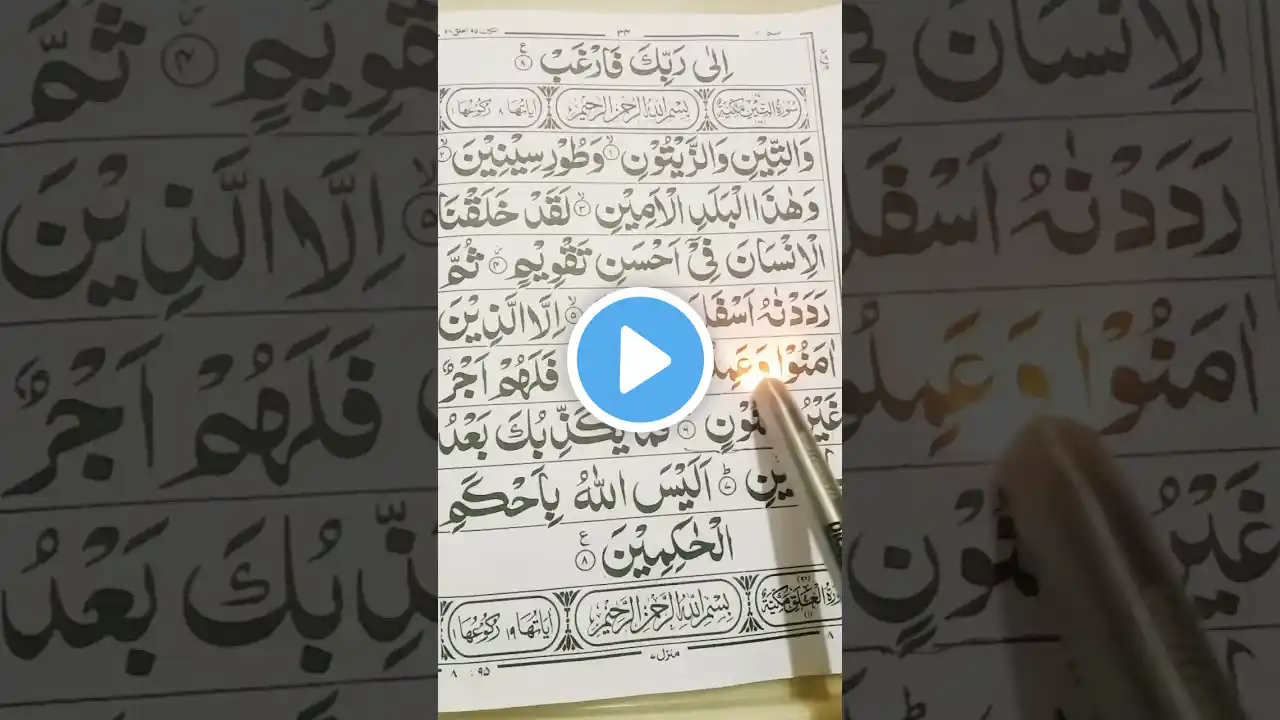 ۳۴
اِلٰى رَبِّكَ فَارْغَبْ ۝۸
سُوْرَةُ التِّيْنِ مَكِّيَّةٌ بِسْمِ اللّٰهِ الرَّحْمٰنِ الرَّحِيْمِ اٰيَاتُهَا ۸ رُكُوْعُهَا ۱
وَالتِّيْنِ وَالزَّيْتُوْنِ ۝۱ وَطُوْرِ سِيْنِيْنَ ۝۲
وَهٰذَا الْبَلَدِ الْاَمِيْنِ ۝۳ لَقَدْ خَلَقْنَا
الْاِنْسَانَ فِيْٓ اَحْسَنِ تَقْوِيْمٍ ۝۴ ثُمَّ
رَدَدْنٰهُ اَسْفَلَ ۝۵ اِلَّا الَّذِيْنَ
اٰمَنُوْا فَلَهُمْ اَجْرٌ
غَيْرُ يُكَذِّبُكَ بَعْدُ
اَلَيْسَ اللّٰهُ بِاَحْكَمِ
الْحٰكِمِيْنَ ۝۸
سُوْرَةُ الْعَلَقِ مَكِّيَّةٌ بِسْمِ اللّٰهِ الرَّحْمٰنِ الرَّحِيْمِ اٰيَاتُهَا ۱۹ رُكُوْعُهَا ۱
منزل ۷
۸ : ۹۵